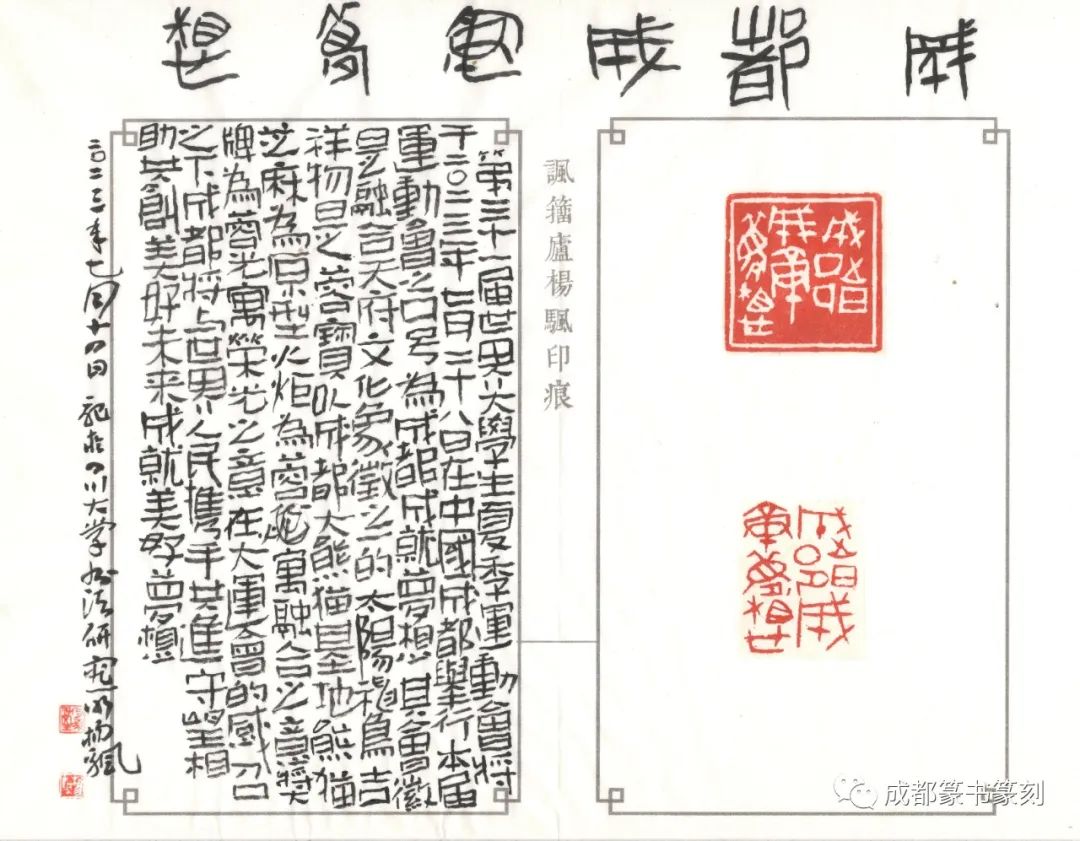 成都成就夢想
第三十一届世界大學生夏季運動會將
于二〇二三年七月二十八日在中國成都舉行本届
運動會之口号為成都成就夢想其會徽
是融合天府文化象徵之一的太陽神鳥吉
祥物是之蓉寶以成都大熊猫基地熊猫
芝麻為原型火炬為蓉寓融合之意獎
牌為蓉光寓榮光之意在大運會的感召
之下成都將与世界人民攜手共進守望相
助共創美好未来成就美好夢想
二〇二三年七月十四日記於四川大学書法研究所楊颿
諷籀廬楊颿印痕
成都
成就
夢想
成都成
就夢想
成都篆书篆刻